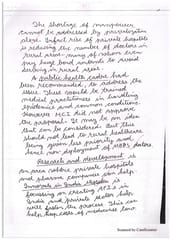 The shortage of manpower
cannot be addressed by privatization
alone. Infact rise of private hospitals
is reducing the number of doctors in
rural areas. many of whom even
pay huge bond instead to avoid
serving in rural areas.
A public health cadre had
been recommended, to address the
issue. These would be trained
medical practitioners in handling
epidemics and common conditions.
However MCI did not approve
the proposal. It may be an idea
that can be considered. But this
should not lead to rural healthcare
being given less priority and
lesser non deployment of MBBS doctors
Research and development is
an area where private hospitals
and pharma companies can help.
Focussing on creating APIs in
India and private labs help
will fasten the process. This can
help keep cost of medicine low.
Scanned by CamScanner